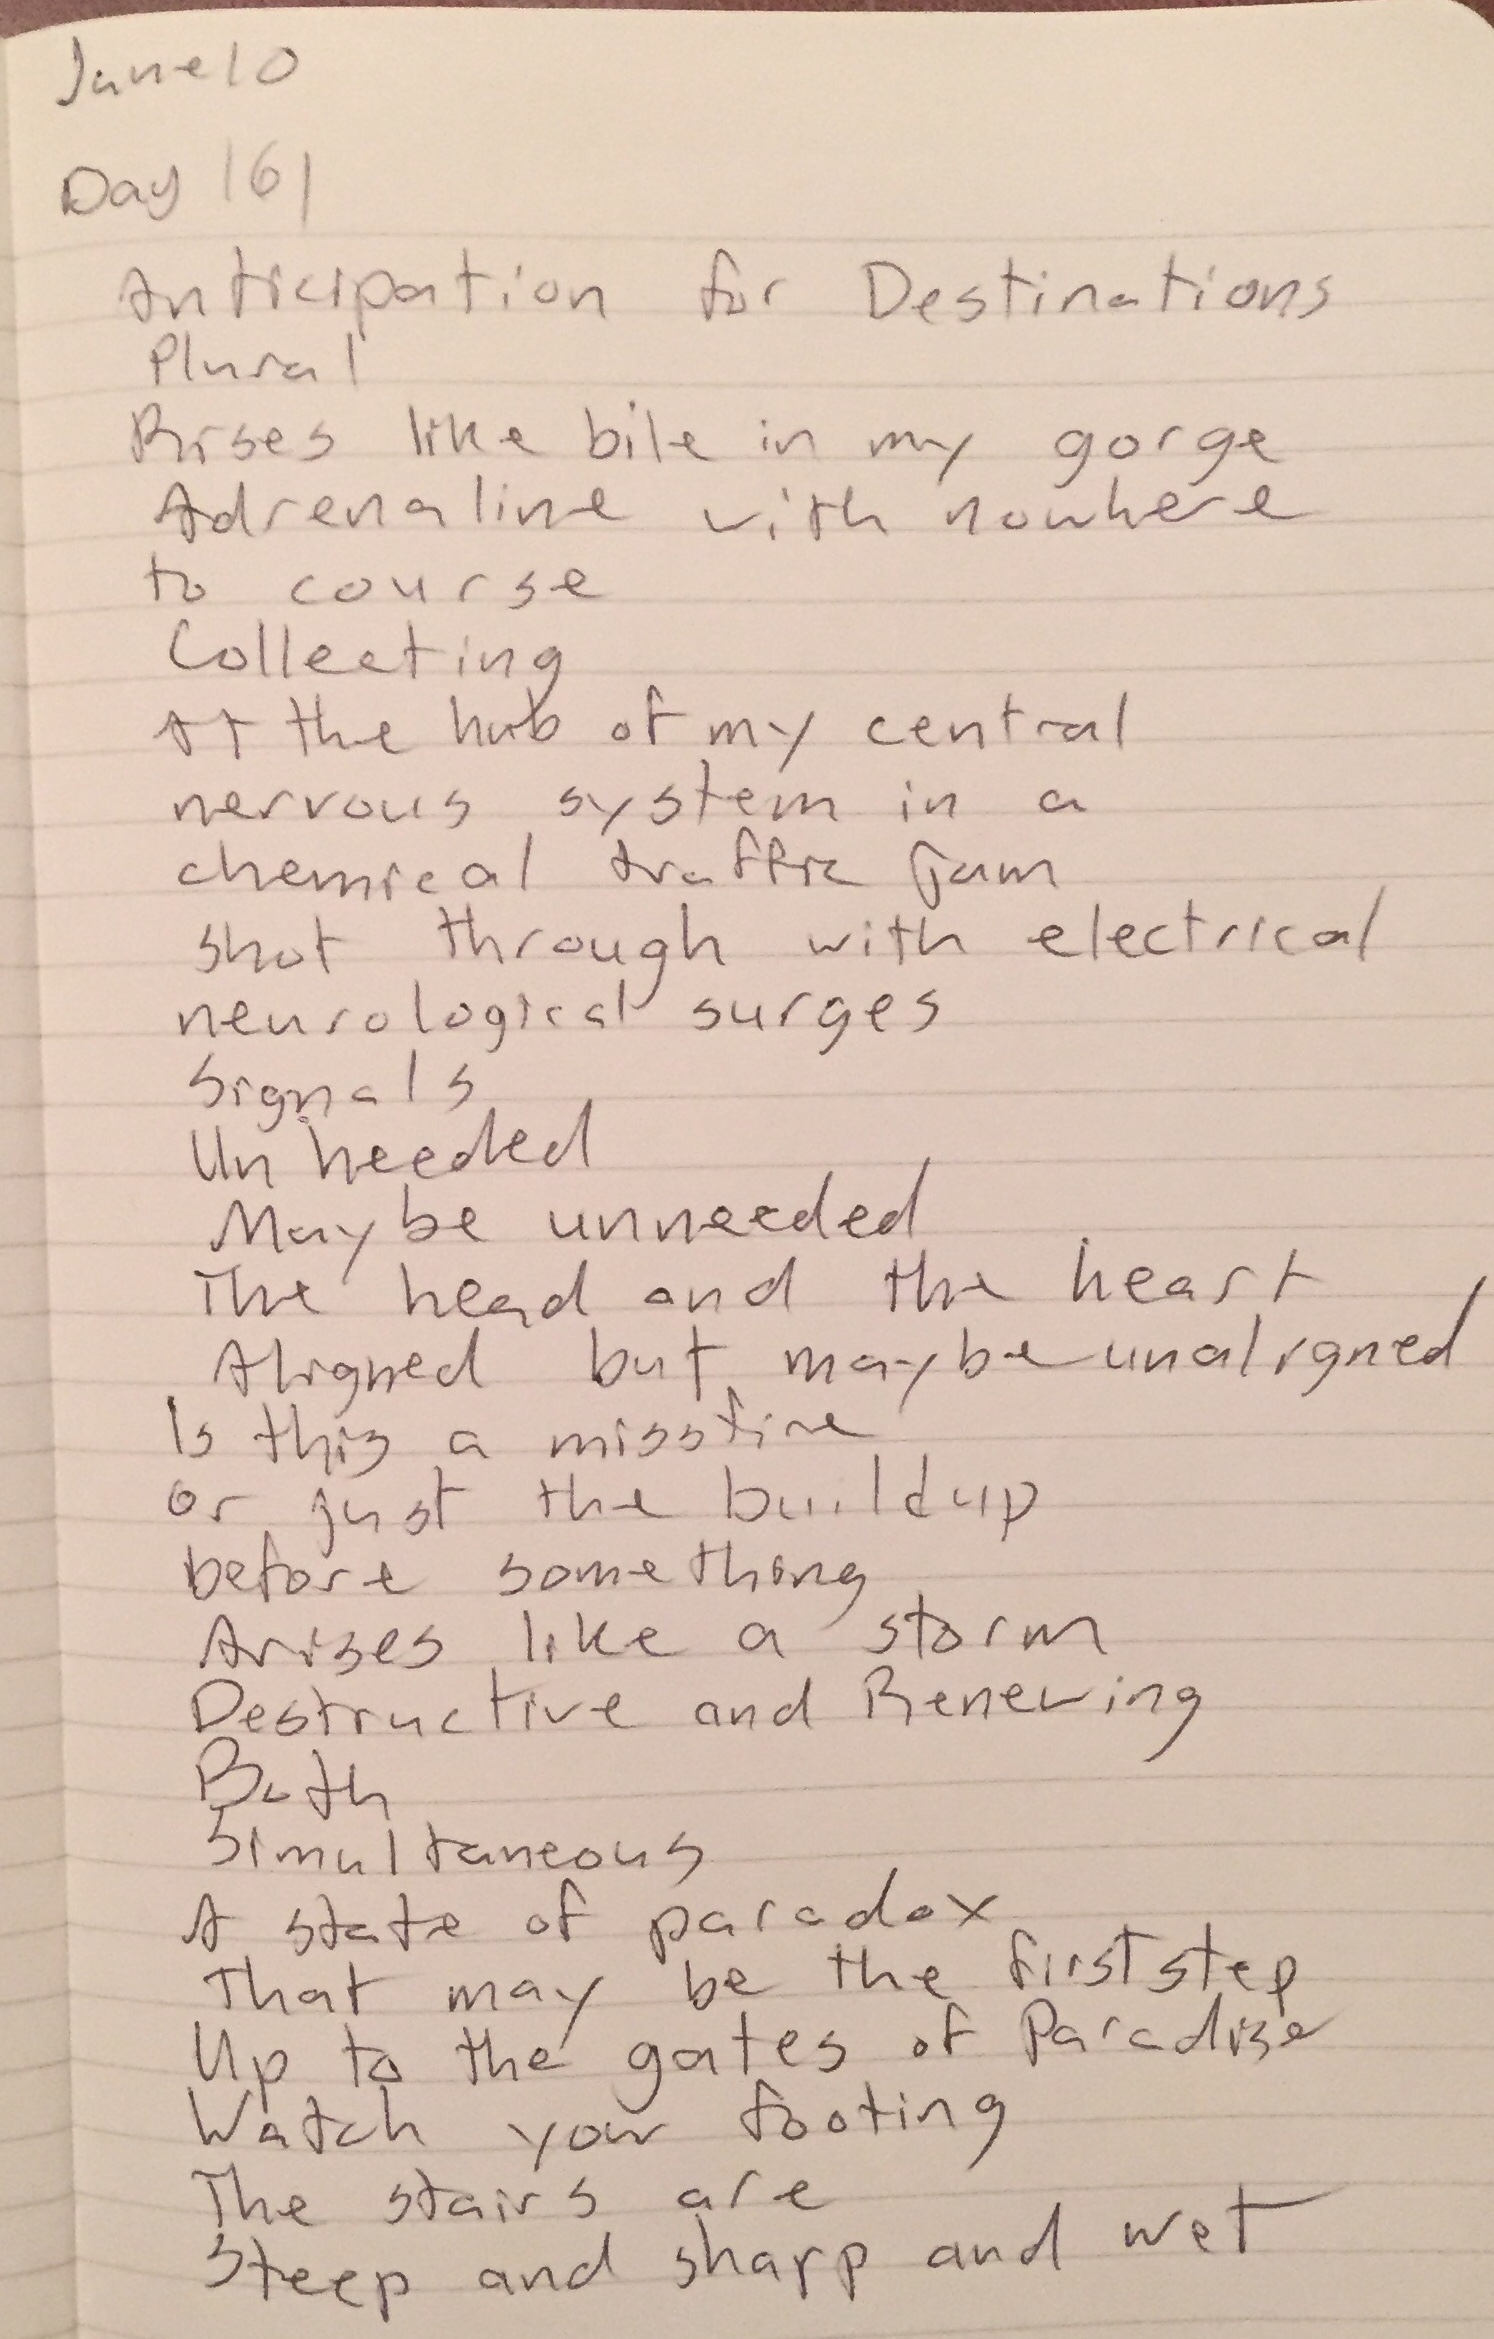 June 10
Day 161
Anticipation for Destinations
Plural
Rises like bile in my gorge
Adrenaline with nowhere
to course
Collecting
At the hub of my central
nervous system in a
chemical traffic jam
shot through with electrical
neurological surges
Signals
Unheeded
Maybe unneeded
The head and the heart
Aligned but maybe unaligned
Is this a missfire
or just the buildup
before something
Arises like a storm
Destructive and Renewing
Both
Simultaneous
A state of paradox
That may be the first step
Up to the gates of Paradise
Watch your footing
The stairs are
Steep and sharp and wet